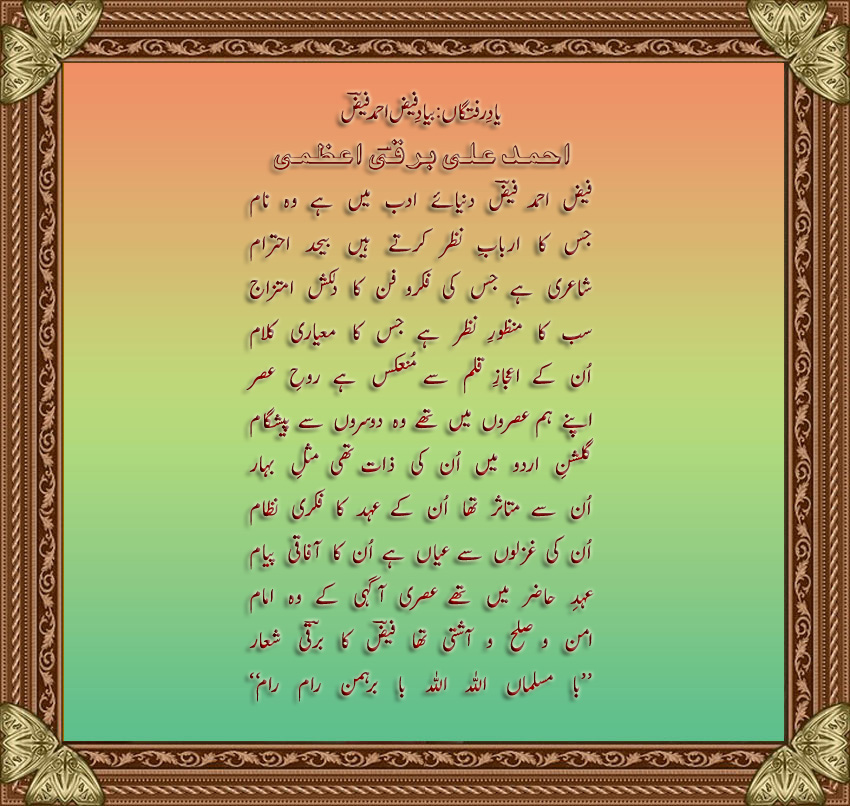 یادِ رفتگاں: بیادِ فیض احمد فیضؔ
احمد علی برقیؔ اعظمی
فیض احمد فیضؔ دنیائے ادب میں ہے وہ نام
جس کا اربابِ نظر کرتے ہیں بیحد احترام
شاعری ہے جس کی فکرو فن کا دلکش امتزاج
سب کا منظورِ نظر ہے جس کا معیاری کلام
اُن کے اعجازِ قلم سے مُنعکس ہے روحِ عصر
اپنے ہم عصروں میں تھے وہ دوسروں سے پیشگام
گلشنِ اردو میں اُن کی ذات تھی مثلِ بہار
اُن سے متاثر تھا اُن کے عہد کا فکری نظام
اُن کی غزلوں سے عیاں ہے اُن کا آفاقی پیام
عہدِ حاضر میں تھے عصری آگہی کے وہ امام
امن و صلح و آشتی تھا فیضؔ کا برقیؔ شعار
’’با مسلماں اللہ اللہ با برہمن رام رام‘‘